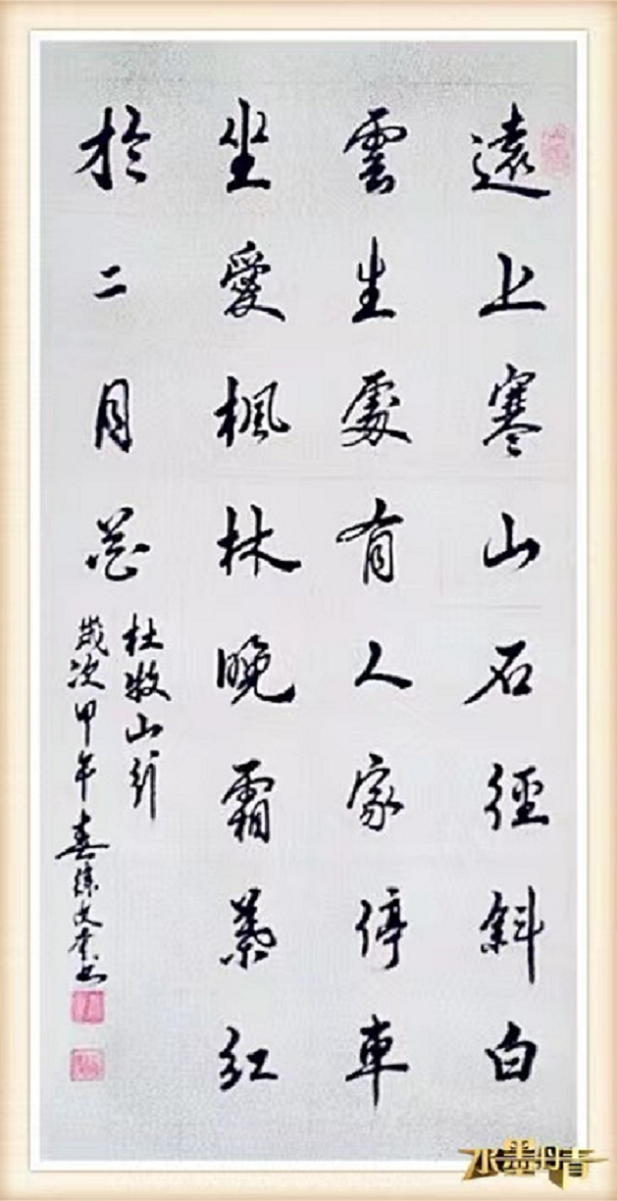 遠上寒山石徑斜白
雲生處有人家停車
坐愛楓林晚霜葉紅
於二月花
杜牧山行
歲次甲午春
水墨丹青